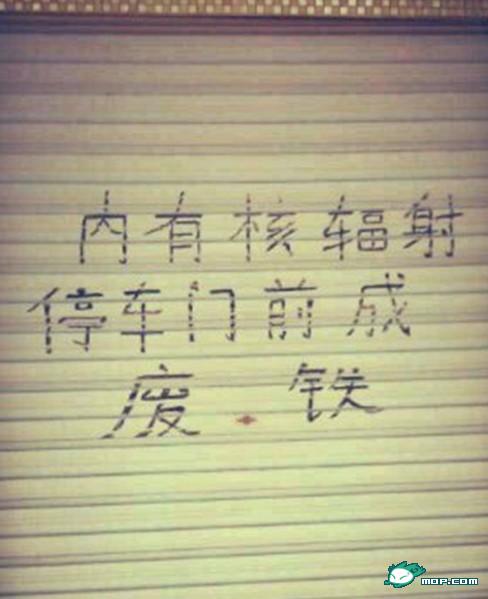 内有核辐射
停车门前成
废.铁
MOP.COM